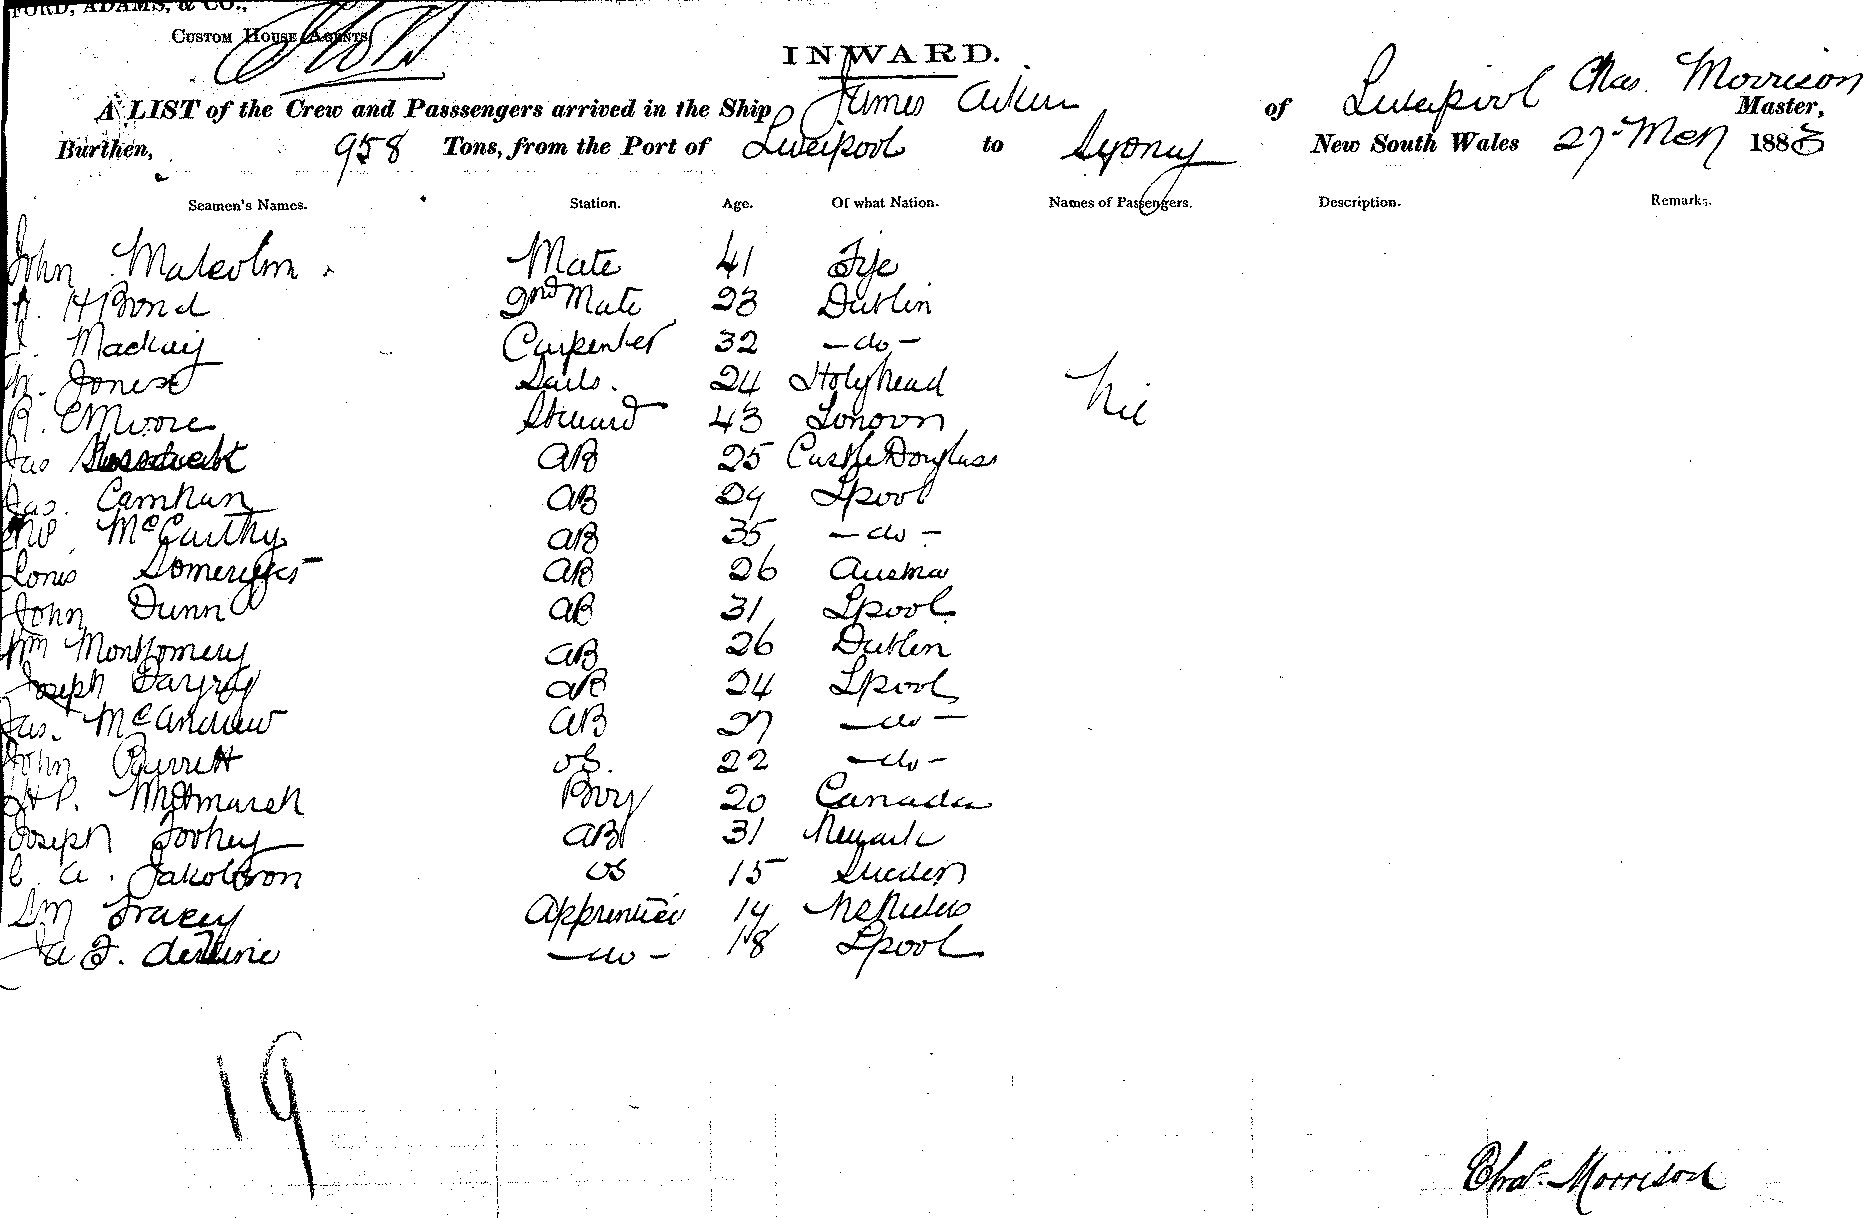 FORD, ADAMS, & CO.,
CUSTOM HOUSE AGENTS
INWARD.
A LIST of the Crew and Passsengers arrived in the Ship James Aiken of Liverpool Chas. Morrison Master,
Burthen, 958 Tons, from the Port of Liverpool to Sydney New South Wales 27 1883
Seamen's Names. Station. Age. Of what Nation. Names of Passengers. Description. Remarks.
John Malcolm Mate 41 Fife
H Bond 2nd Mate 23 Dublin
Mackay Carpenter 32 -do-
Jones Sails. 24 Holyhead
R. E Moore Steward 43 London
Nil
Jas AB 25 Castle Douglas
Jas. AB 29 Lpool
McCarthy AB 35 -do-
Louis AB 26 Austria
John Dunn AB 31 Lpool
Wm Montgomery AB 26 Dublin
Joseph AB 24 Lpool
Jas. McAndrew AB 27 -do-
John OS. 22 -do-
H P. Whitmarsh Boy 20 Canada
Joseph Toohey AB 31 Newark
C. A. Jakobson OS 15 Sweden
Tracey Apprentice 19
-do- 18 Lpool
19
Chas. Morrison